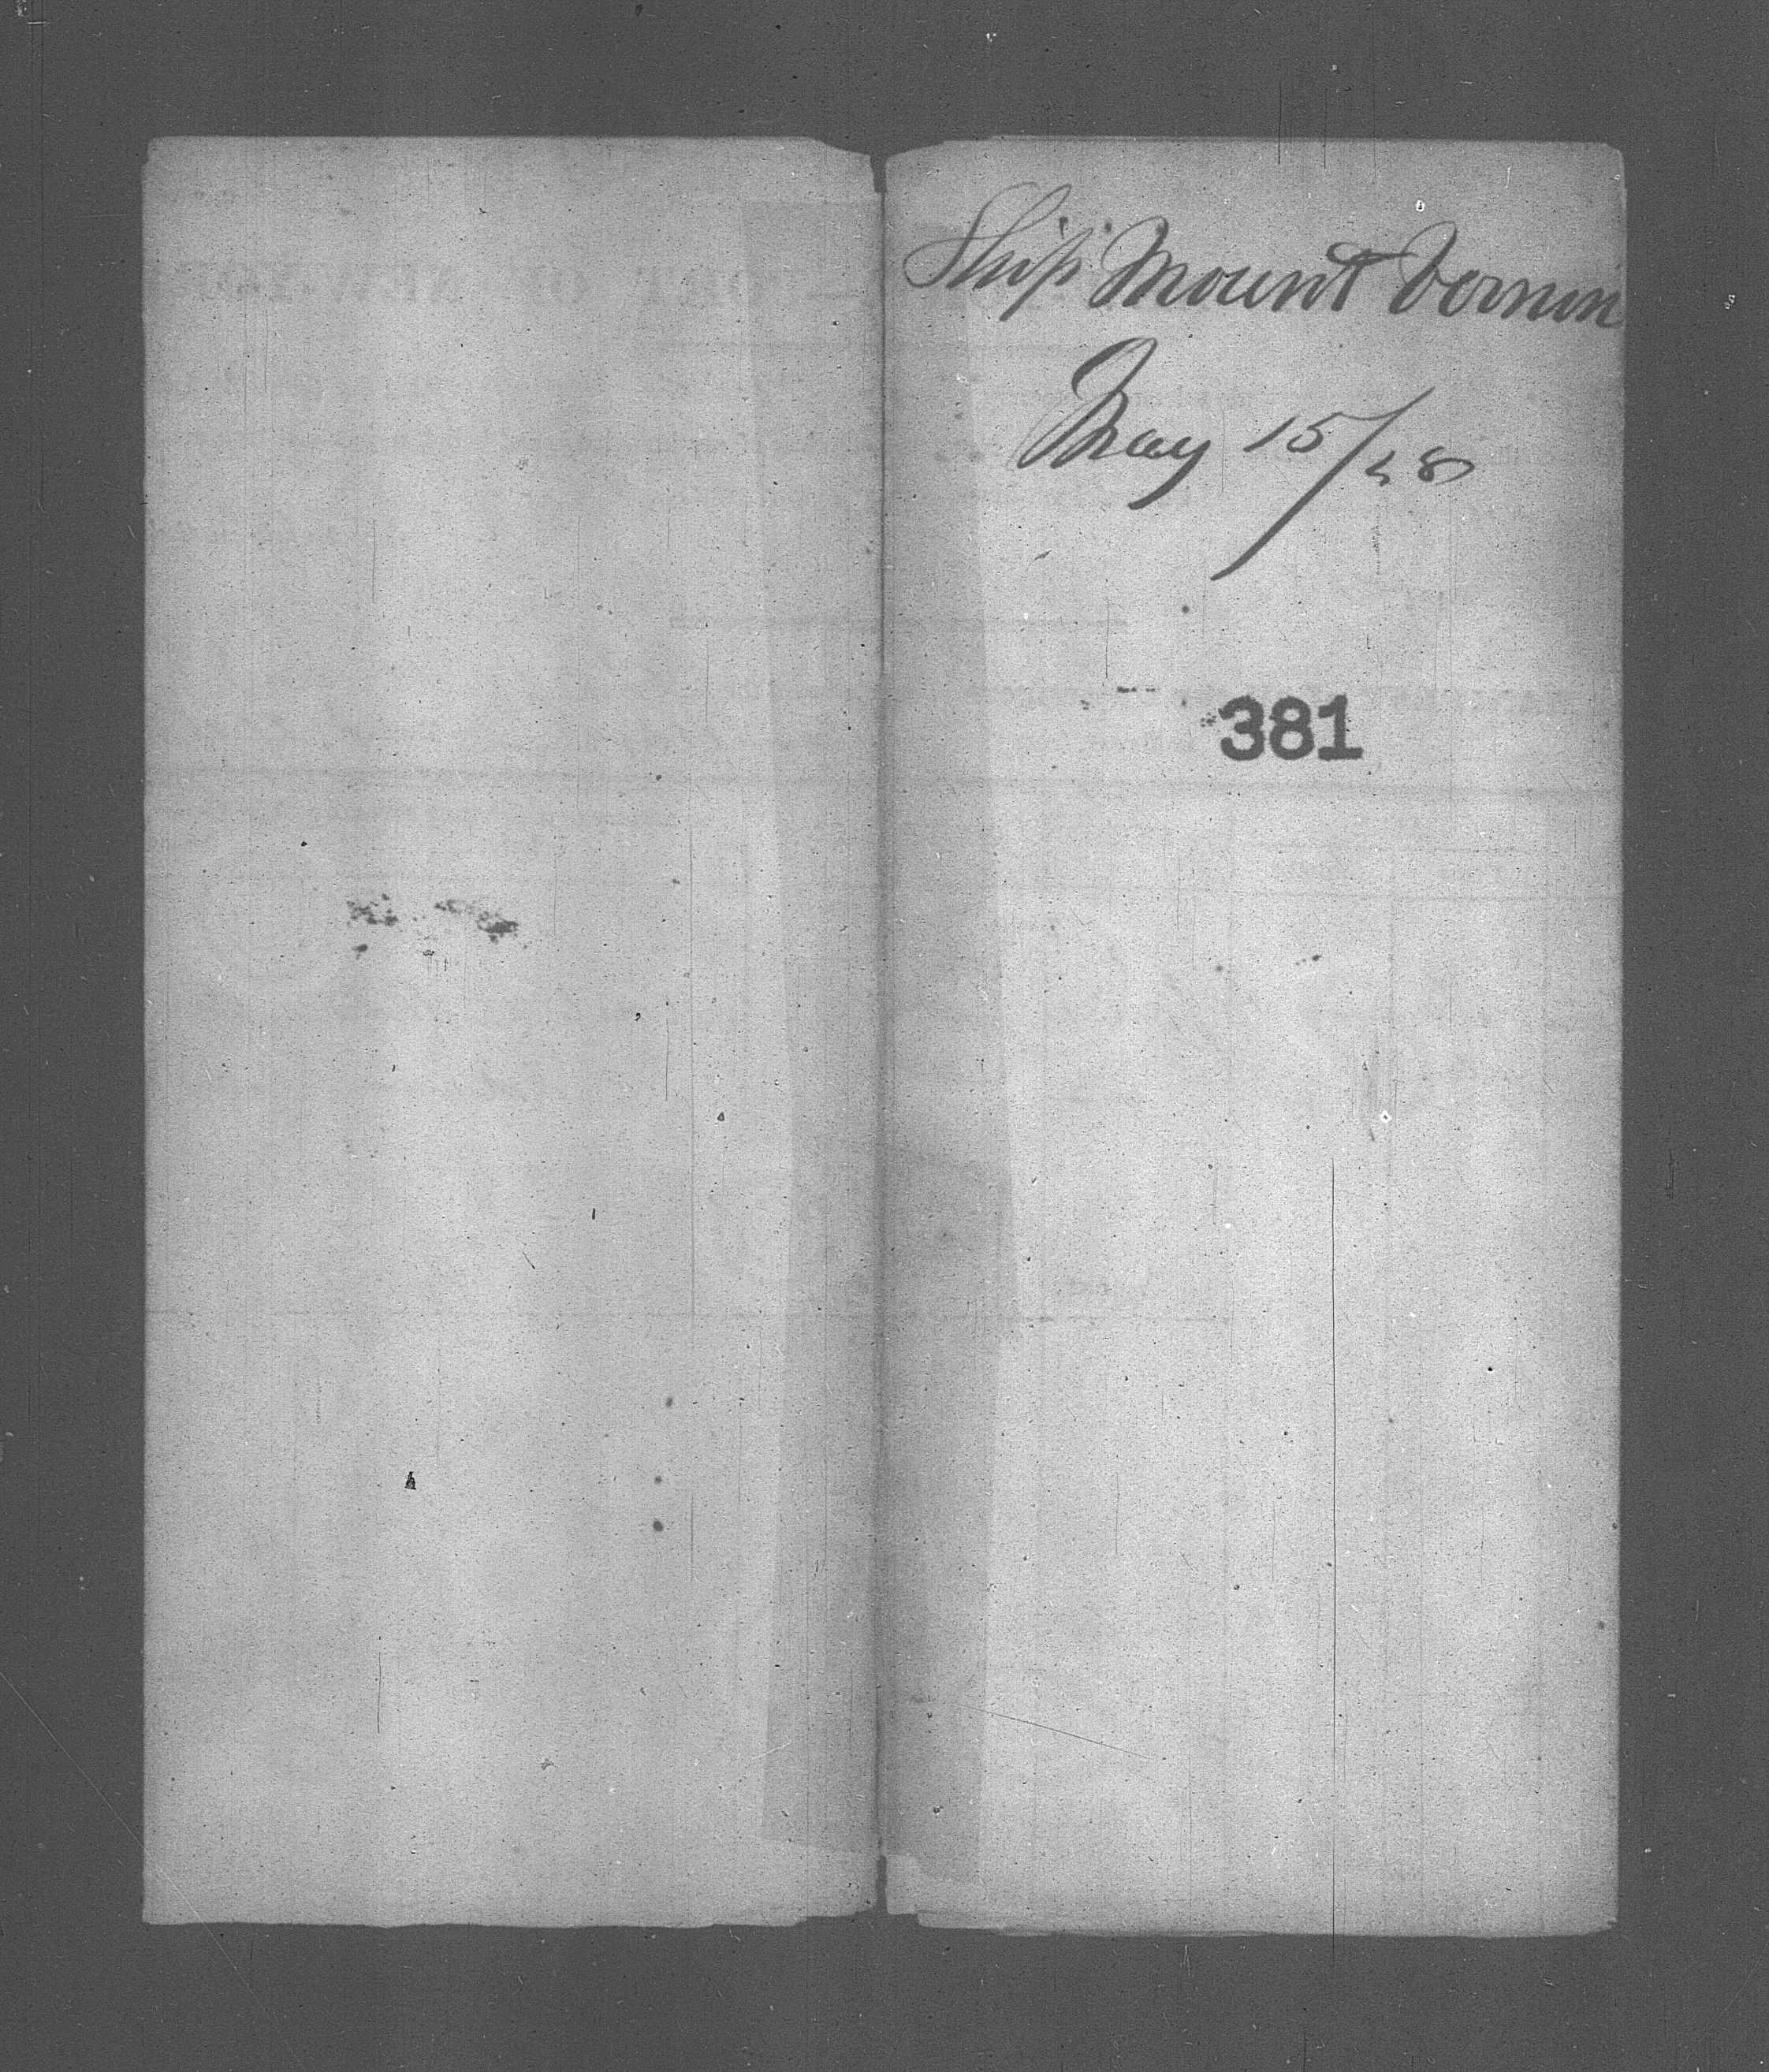 Ship Mount Vernon
May 15/48
381